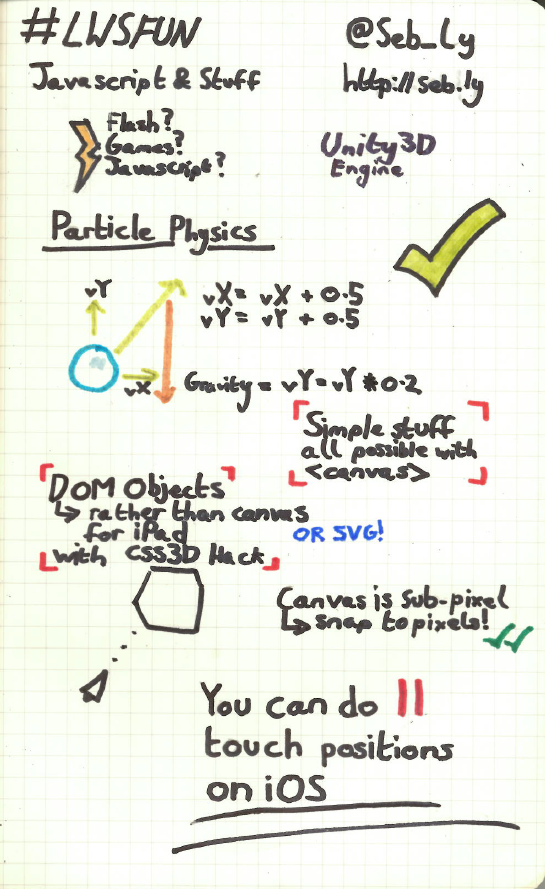 #LWSFUN
@Seb_Ly
Javascript & Stuff
http://seb.ly
Flash?
Games?
Javascript?
Unity3D
Engine
Particle Physics
vY
vX = vX + 0.5
vY = vY + 0.5
vX
Gravity = vY = vY * 0.2
Simple stuff
all possible with
<canvas>
DOM Objects
↳ rather than canvas
for iPad
with CSS3D Hack
OR SVG!
Canvas is Sub-pixel
↳ snap to pixels!
You can do 11
touch positions
on iOS